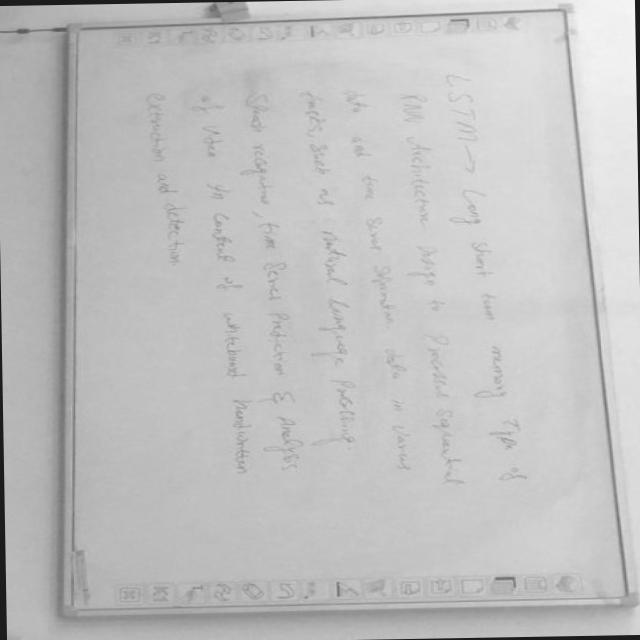 LSTM → Long short term memory Type of
RNN Architecture Design to Proceed Sequential
data and time Series data in various
such as natural language Processing.
recognition, time Series Prediction & Analysis
of When in Context of whiteboard
extraction and detection